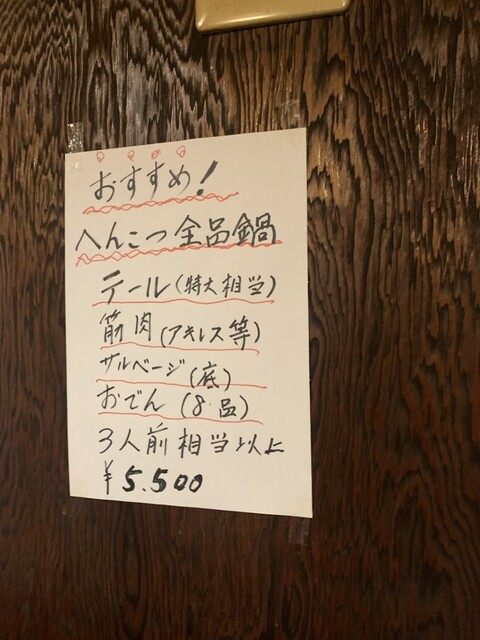 おすすめ!
へんこつ全品鍋
テール(特大相当)
筋肉(アキレス等)
サルベージ(底)
おでん(8品)
3人前相当以上
¥5.500